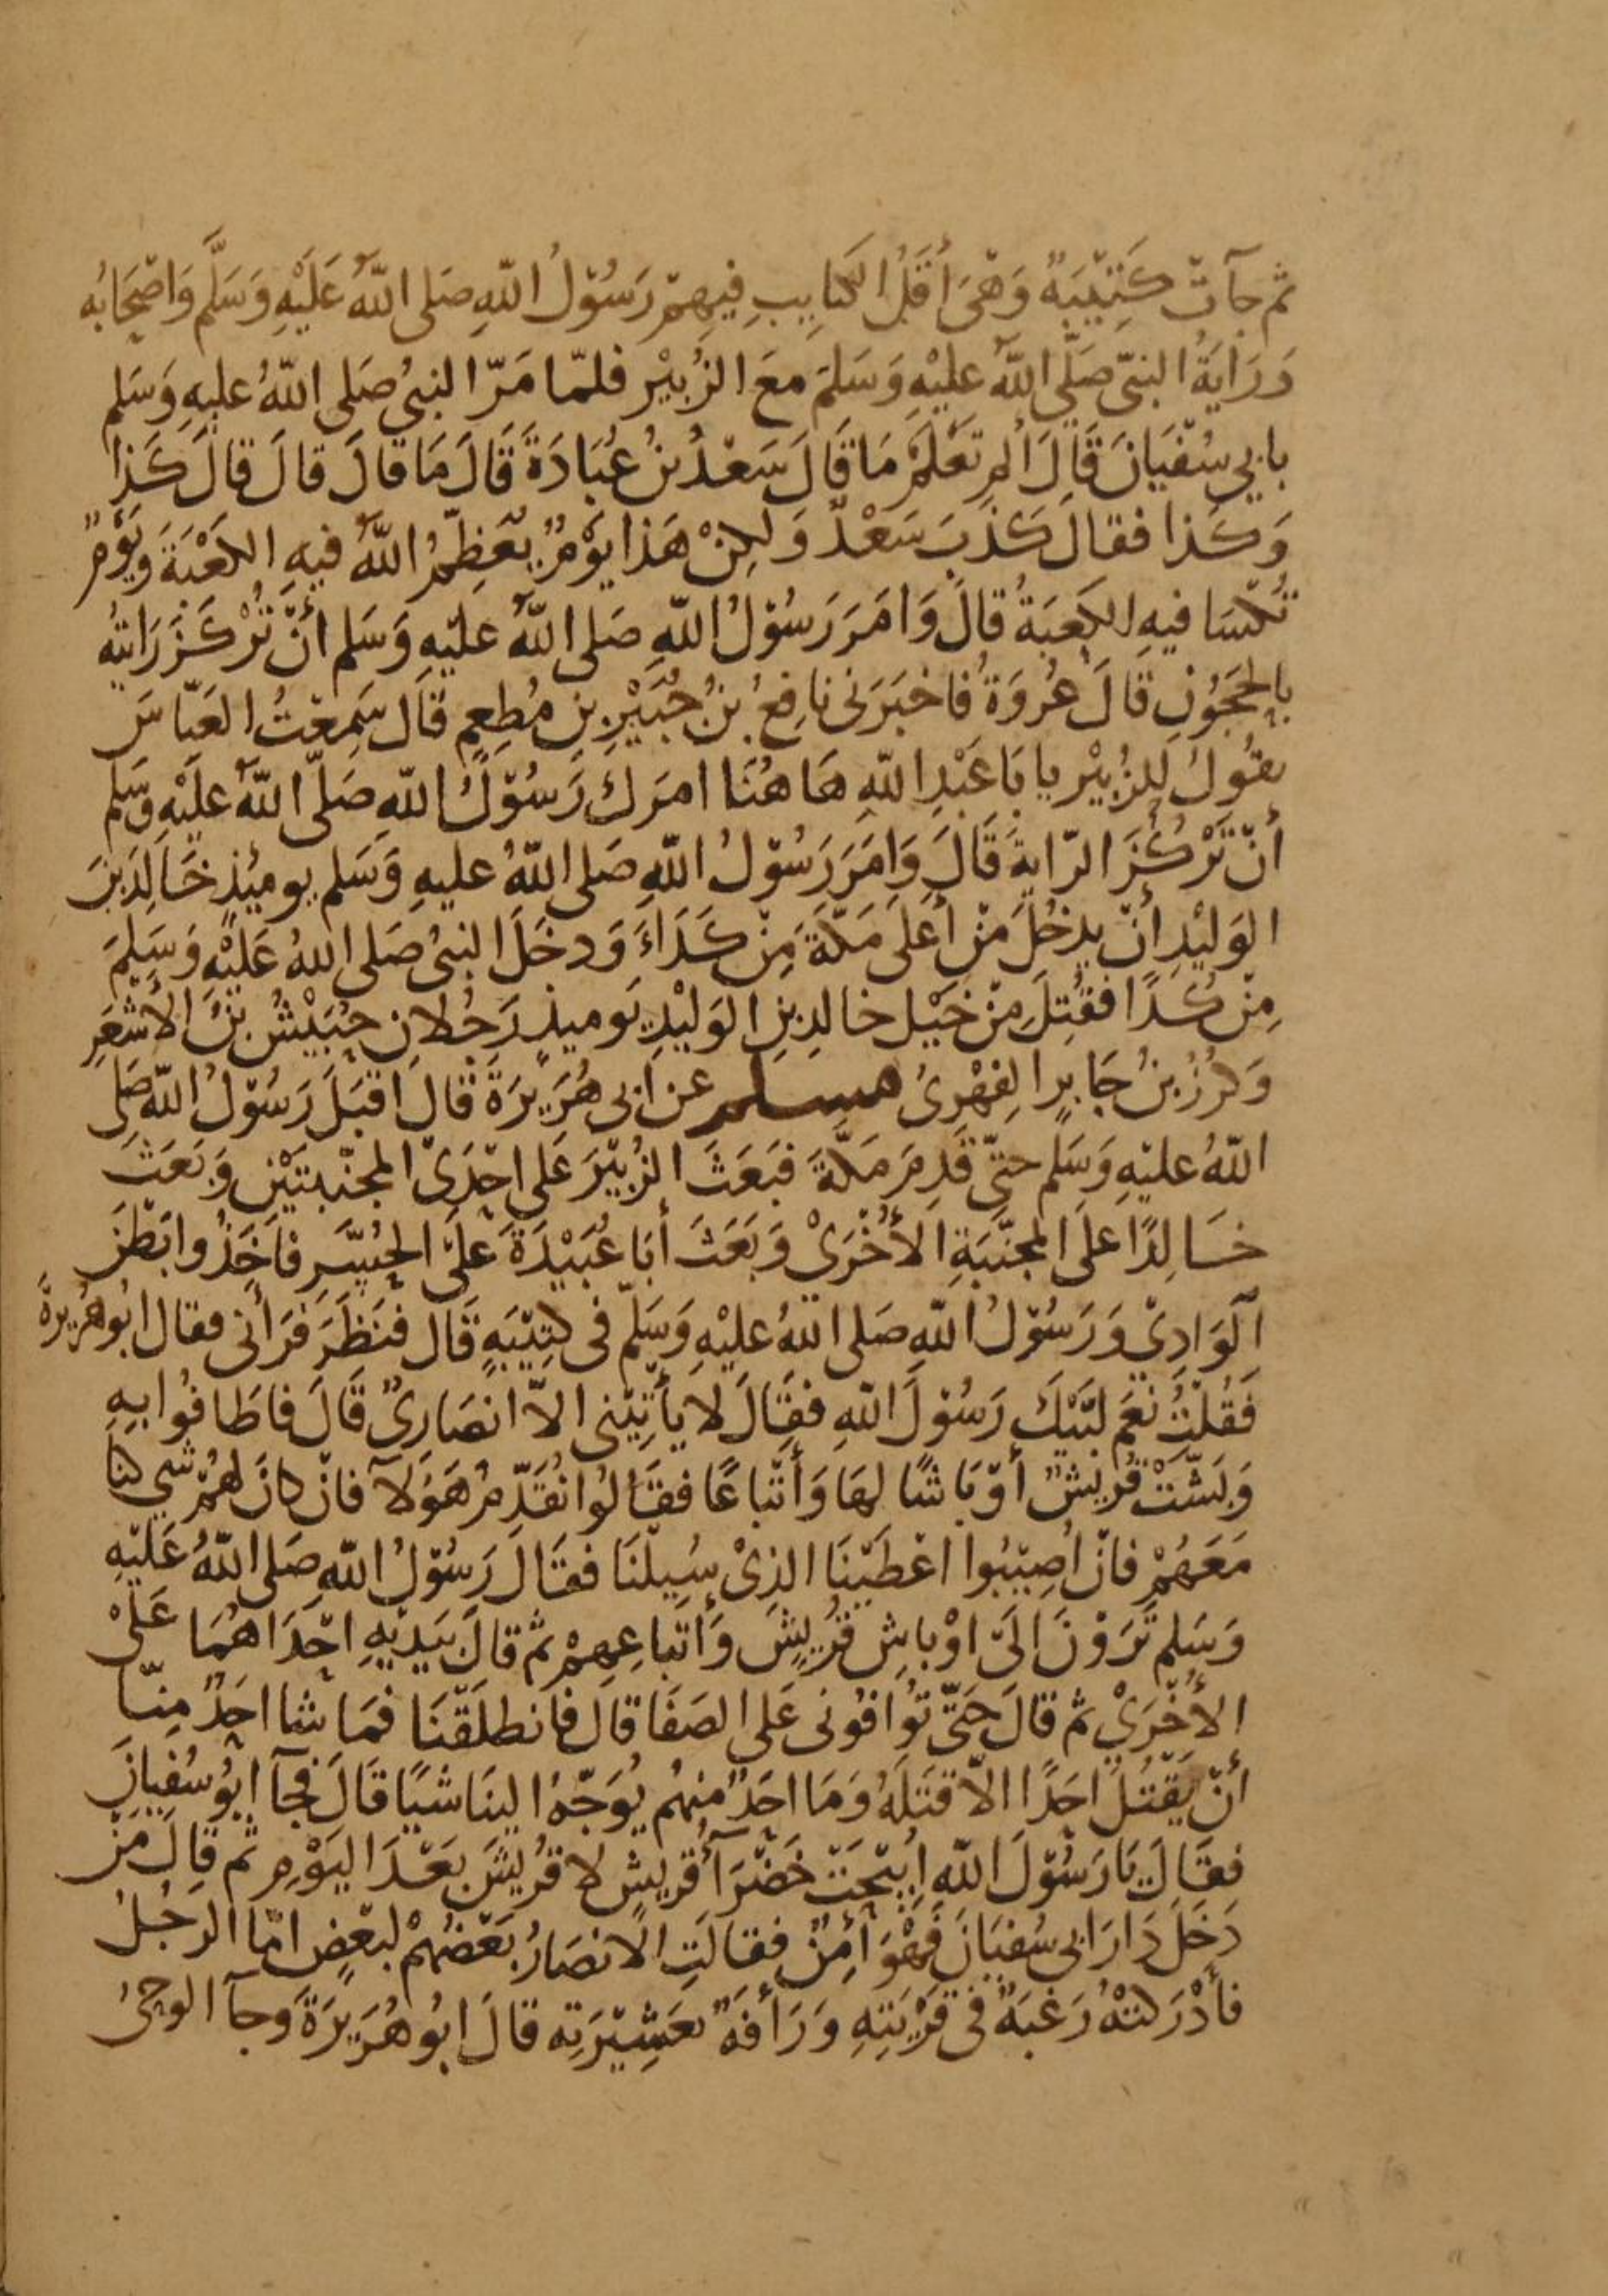 ثم جآت كَتِيْبَةٌ وَهْىَ أَقَلُّ الكتايبِ فيهِمْ رَسُوْلُ اللّهِ صَلى اللّهُ عَلَيْهِ وَسَلَّم وَاصْحَابُه
وَرَايَةُ النبىّ صَلَّى اللّهُ عليْهِ وَسَلمَ معَ الزُبيْر فلمّا مَرّ النبىُ صَلى اللّهُ عليهِ وَسَلم
بابي سُفْيَانَ قَالَ المِ تَعْلَمْ مَا قَالَ سَعْدُ بنُ عُبَادَةَ قَالَ مَا قالَ قالَ قالَ كَذا
وَكَذا فقالَ كَذَبَ سَعْدٌ وَلكِنْ هَذا يَوْمٌ يُعَظِّمُ اللّهُ فيهِ الكَعْبَةَ ويَوْمٌ
تُكْسَا فيهِ الكَعبَةُ قالَ وَامَرَ رَسُوْلُ اللّهِ صَلى اللّهُ عليْهِ وَسَلم أنْ تُرْكَزَ رَايتهُ
بالحَجَوُنِ قالَ عُروَةُ فاخبَرَنى نافعُ بنُ جُبَيْرِ بنِ مُطعِمٍ قال سَمِعْتُ العَبّاسَ
يقُولُ للزُبيْر يا بَا عَبْدِ اللّهِ هَا هُنَا امَرَكَ رَسُوْلُ اللّهِ صَلّى اللّهُ عَليْهِ وَسَلم
أنْ تَرْكُزَ الرّايةَ قَالَ وَامَرَ رَسُوْلُ اللّهِ صَلى اللّهُ عليهِ وَسَلم يوميُذٍ خَالِدَ بنَ
الوَليْدِ أنْ يدخُلَ مِنْ أعلى مَكّةَ مِنْ كَدَاءَ وَدخَلَ النبىُ صَلى اللهُ عَليْهِ وَسَلِمَ
مِنْ كُدًا فقُتِلَ مِنْ خَيْل خالدِ بنِ الوَليْدِ يَوميذٍ رَجُلانِ حُبَيْشُ بنُ الأشْعَرِ
وَكرْزُ بنُ جَابرٍ الفِهْرِىُ مسلم عن أبى هُرَيرَةَ قالَ اقبَلَ رَسُوْلُ اللّهِ صَلى
اللّهُ عليْهِ وَسَلم حتىّ قَدِمَ مَكّةَ فبَعَثَ الزُبيْرَ عَلى احْدَىْ المجنّبتَيْنِ وَبَعَثَ
خَالِدًا على المجنّبَةِ الأخْرَىْ وَبَعَثَ أبَا عُبَيْدَةَ عَلىَ الحُسّرِ فاخَذُوا بَطْنَ
الوَادِىْ وَرَسُوْلُ اللّهِ صَلى اللّهُ عليْهِ وَسَلّم فى كتِيْبَةٍ قَال فنَظَرَ فرَأنى فقال ابُو هُرَيرةَ
فَقُلتُ نَعَم لبّيْكَ رَسُوْلَ اللّهِ فقَالَ لا يأتِيْنى الاّ انصَارِىٌ قَالَ فاطَافُوا بهِ
وَبَشّتْ قُريشٌ أوْبَاشًا لهَا وَأتْباعًا فقَالُوا نُقَدِّمُ هَؤلآ فانْ كانَ لهُمْ شي كنا
مَعَهُمْ فانْ أصِيْبُوا اعْطَيْنَا الذِىْ سُيِلْنَا فقَالَ رَسُوْلُ اللّهِ صَلى اللّهُ عَليْهِ
وَسَلم تَرَوْنَ الىَ اوْباشِ قُريشٍ وَأتباعِهِمْ ثم قالَ بيَديْهِ احْدَاهُمَا عَلىْ
الأخْرَىْ ثم قالَ حَتّى تُوافُونى عَلى الصَفَا قال فانطلَقْنَا فمَا شا احَدٌ مِنّا
أنْ يَقْتُلَ احَدًا الاّ قتَلَهُ وَمَا احَدٌ منهُم يُوَجّهُ الينَا شيًا قَالَ فجآ ابُو سُفيانَ
فقَالَ يَا رَسُوْلَ اللّهِ ابيْحَتْ خَضْرَآُ قريشٍ لا قُريشَ بَعْدَ اليَوْمِ ثم قالَ مَنْ
دَخَلَ دَارَ ابى سُفيَانَ فَهْوَ أمِنٌ فقالَتِ الأنصَارُ بَعْضُهُمْ لبَعْضٍ امّا الرَجُلُ
فأدْرَكتْهُ رَغبَةٌ فى قَرْيَتِهِ وَرَأفَةٌ بعَشِيْرَتِه قالَ ابُو هُرَيرَةَ وجآ الوحىُ